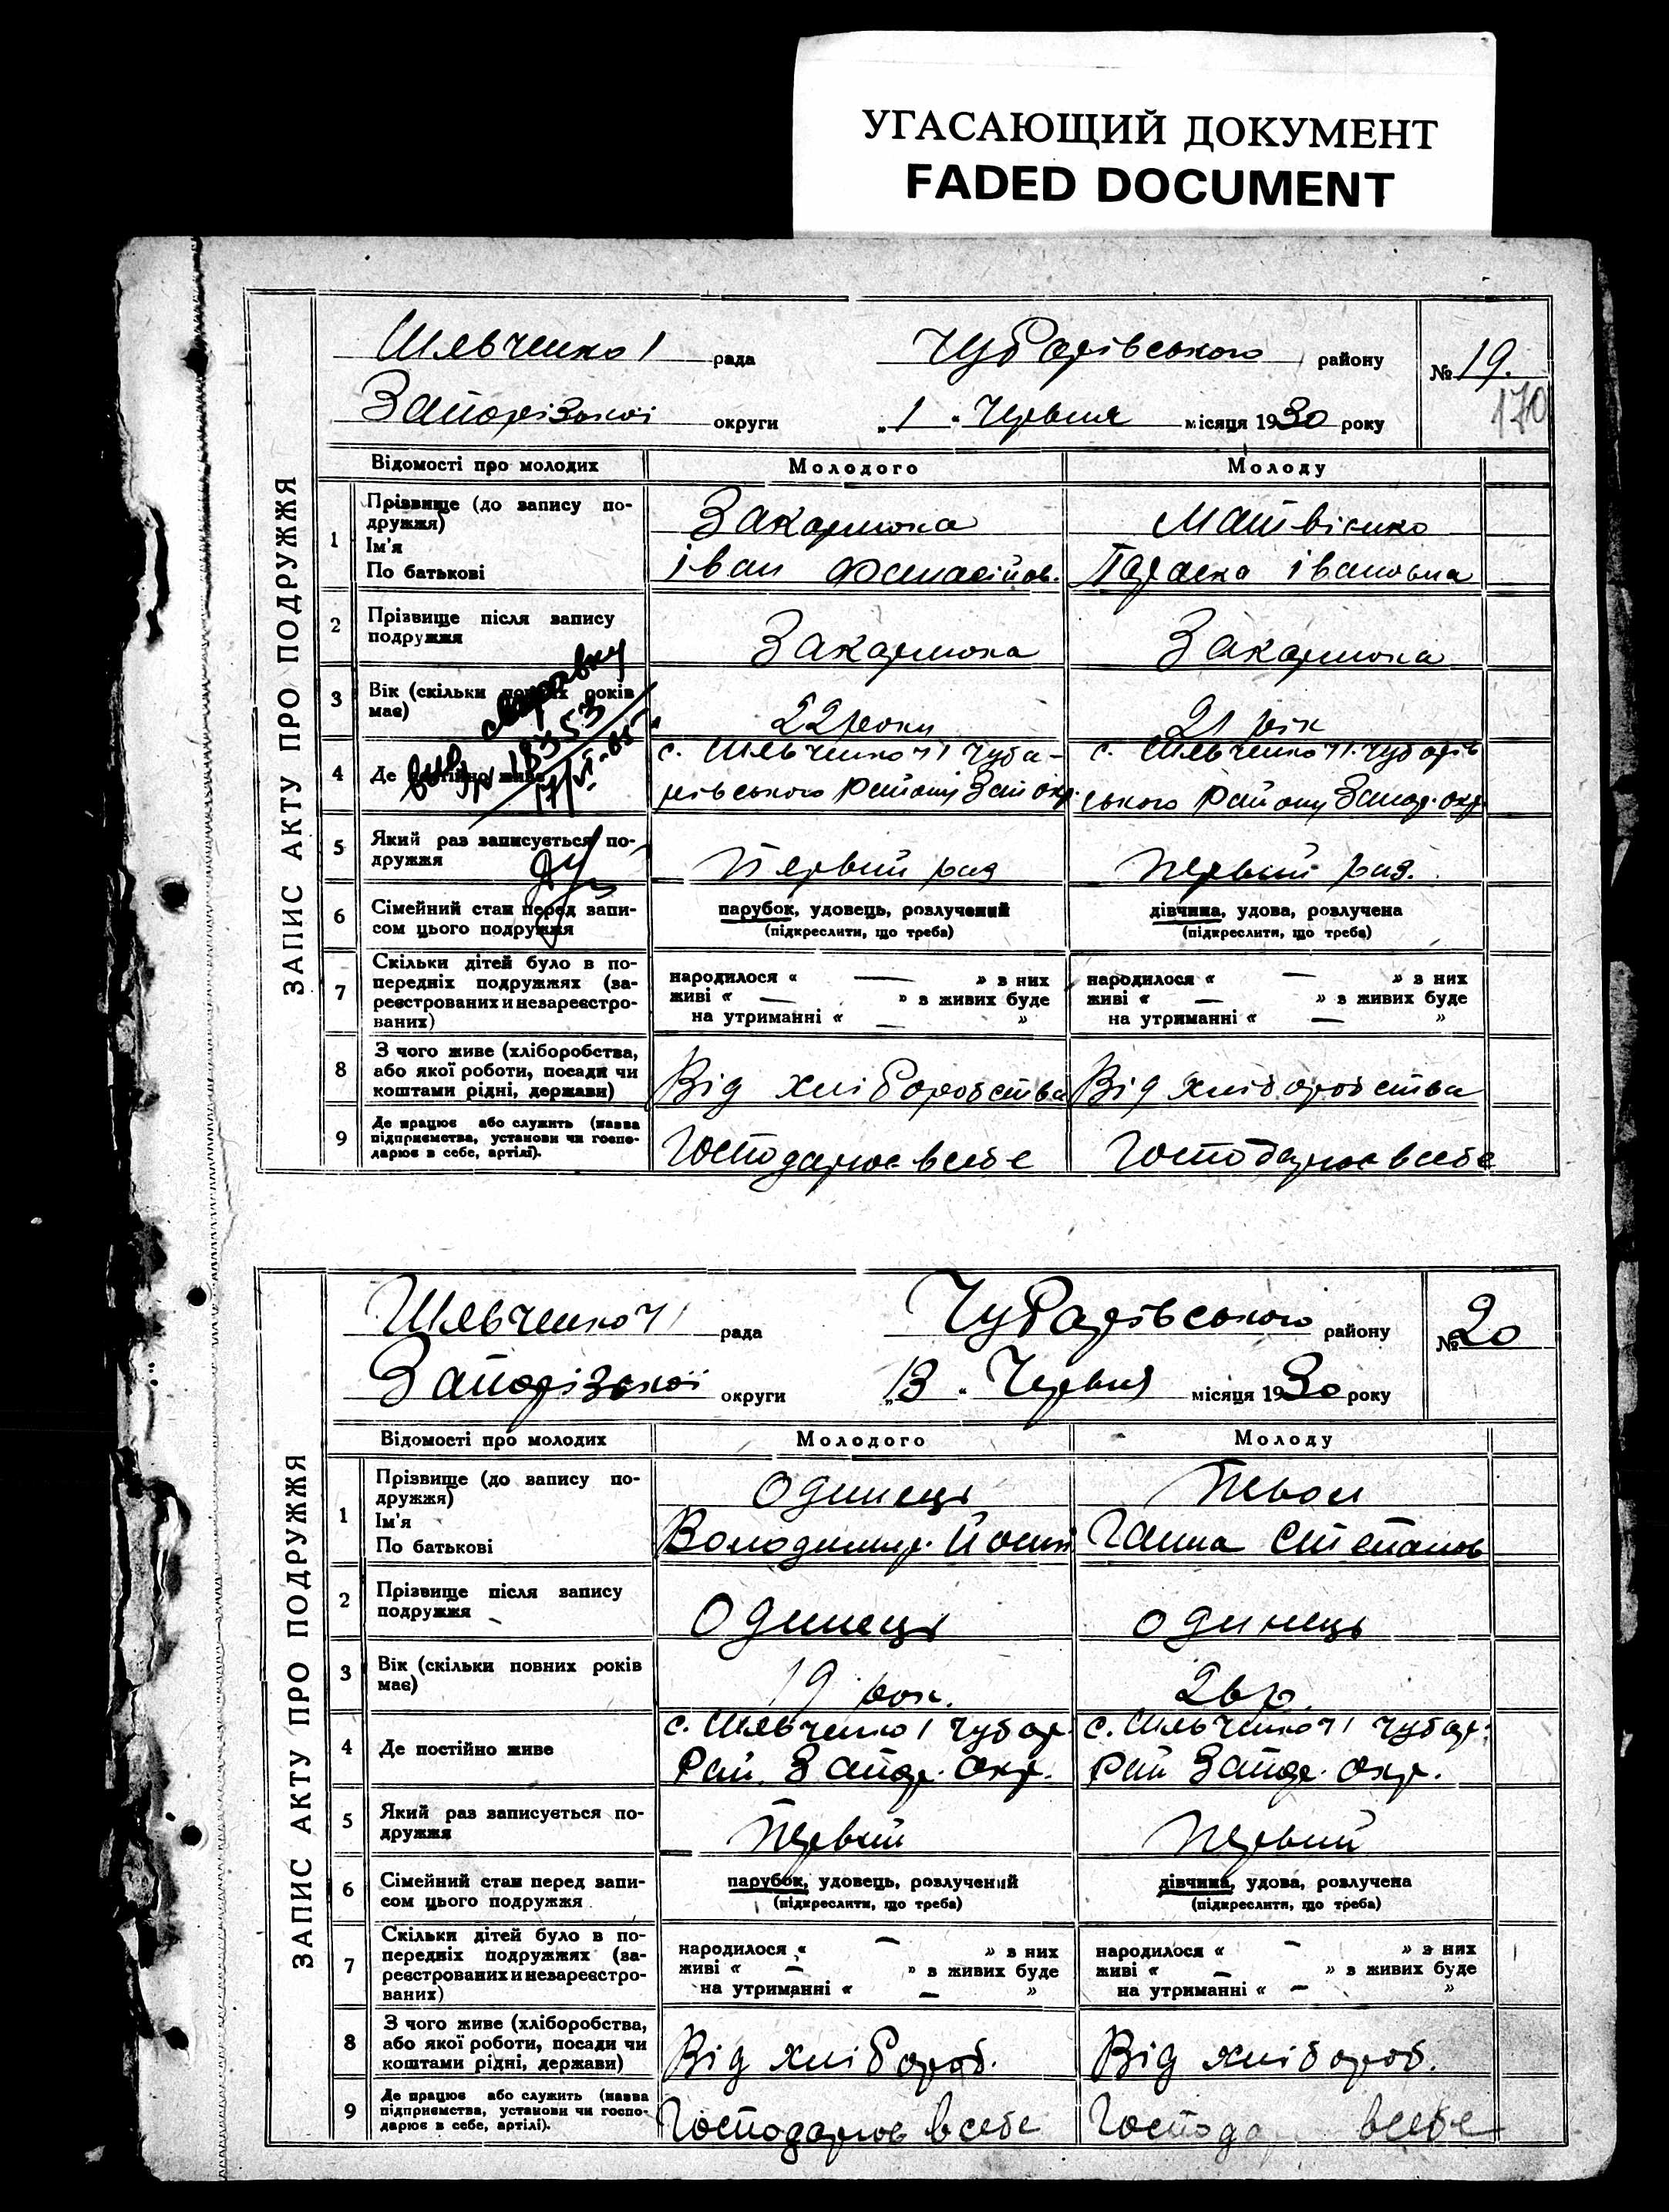 УГАСАЮЩИЙ ДОКУМЕНТ
FADED DOCUMENT
ЗАПИС АКТУ ПРО ПОДРУЖЖЯ
Шевченко 1 рада Чубарівського району № 19.
170
Запорізької округи „1“ Червня місяця 1930 року
Відомості про молодих Молодого Молоду
1 Прізвище (до запису по-
дружжя) Закарлюка Матвієнко
Ім'я
По батькові Іван Фанасійов. Параска Івановна
2 Прізвище після запису
подружжя Закарлюка Закарлюка
3 Вік (скільки повних років
має) 22 роки 21 рік
справку
4 Де постійно живе с. Шевченко 1 Чуба-
рівського Району Зап окр.
с. Шевченко 1 Чубарів
ського Району Запор. окр.
5 Який раз записується по-
дружжя Первий раз Первий раз.
6 Сімейний стан перед запи-
сом цього подружжя
парубок, удовець, розлучений
(підкреслити, що треба)
дівчина, удова, розлучена
(підкреслити, що треба)
7 Скільки дітей було в по-
передніх подружжях (за-
реєстрованих и незареєстро-
ваних)
народилося « — » з них
живі « — » з живих буде
на утриманні « — »
народилося « — » з них
живі « — » з живих буде
на утриманні « — »
8 З чого живе (хліборобства,
або якої роботи, посади чи
коштами рідні, держави)
Від хліборобства Від хліборобства
9 Де працює або служить (назва
підприємства, установи чи госпо-
дарює в себе, артілі).
Господарює в себе Господарює в себе
ЗАПИС АКТУ ПРО ПОДРУЖЖЯ
Шевченко 1 рада Чубарівського району № 20
Запорізької округи „13“ Червня місяця 1930 року
Відомості про молодих Молодого Молоду
1 Прізвище (до запису по-
дружжя) Одинець
Ім'я
По батькові Володимир Йосип Ганна Степанов
2 Прізвище після запису
подружжя Одинець Одинець
3 Вік (скільки повних років
має) 19 рок.
4 Де постійно живе
с. Шевченко 1 Чубар.
Рай. Запор. Окр.
с. Шевченко 1 Чубар.
Рай Запор. Окр.
5 Який раз записується по-
дружжя Первий Первий
6 Сімейний стан перед запи-
сом цього подружжя
парубок, удовець, розлучений
(підкреслити, що треба)
дівчина, удова, розлучена
(підкреслити, що треба)
7 Скільки дітей було в по-
передніх подружжях (за-
реєстрованих и незареєстро-
ваних)
народилося « — » з них
живі « — » з живих буде
на утриманні « — »
народилося « — » з них
живі « — » з живих буде
на утриманні « — »
8 З чого живе (хліборобства,
або якої роботи, посади чи
коштами рідні, держави)
Від хлібороб. Від хлібороб.
9 Де працює або служить (назва
підприємства, установи чи госпо-
дарює в себе, артілі).
Господарює в себе Господа в себе